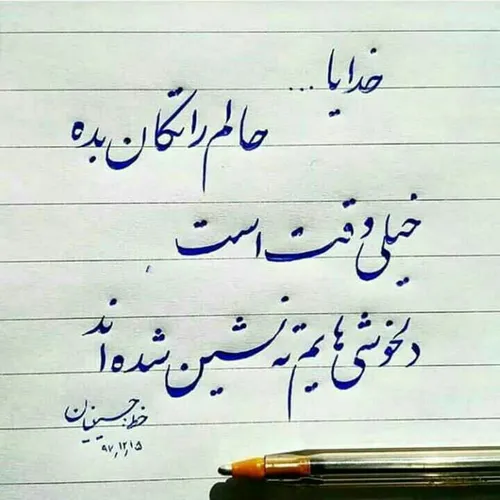 خدایا...
حالم را تکان بده
خیلی وقت است
دلخوشی هایم ته نشین شده اند
خط: حسینیان
۹۷,۱۲,۱۵